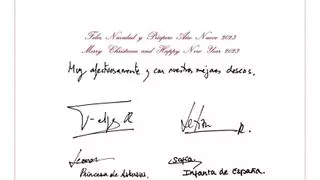 Feliz Navidad y Próspero Año Nuevo 2023
Merry Christmas and Happy New Year 2023
Muy afectuosamente y con nuestros mejores deseos,
Felipe R Letizia R.
Leonor Sofía
Princesa de Asturias Infanta de España.